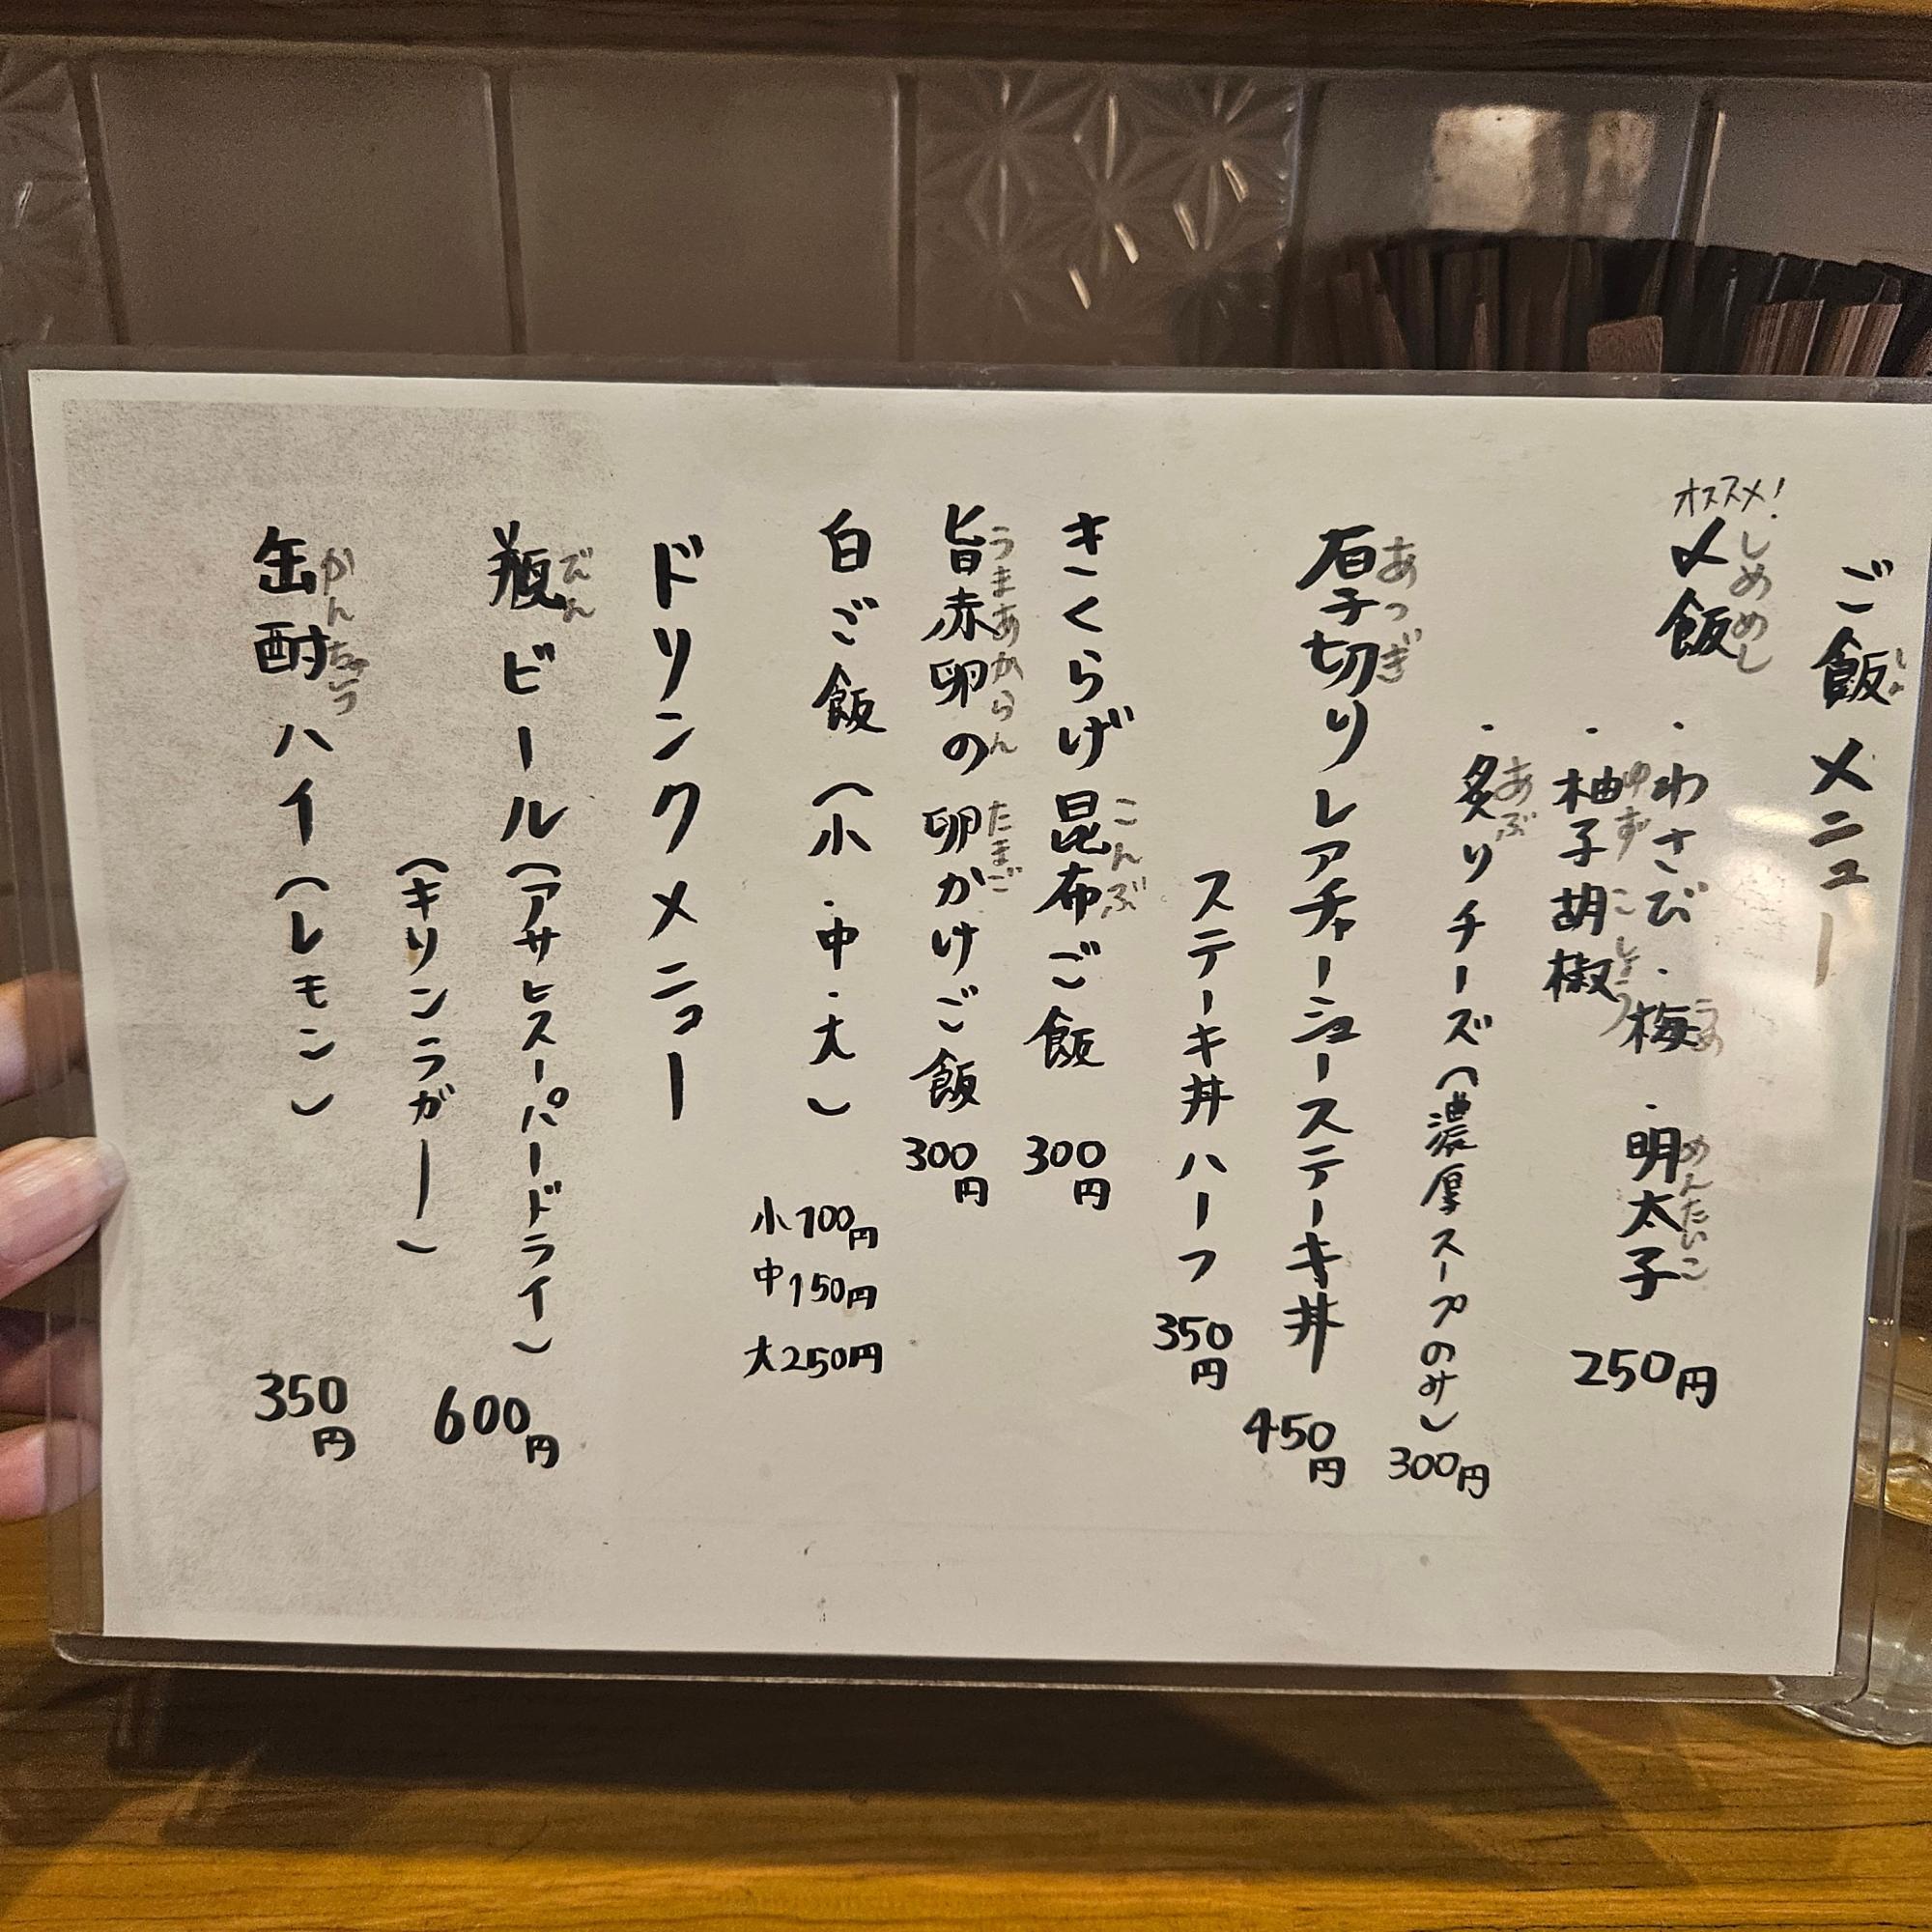 ご飯メニュー
オススメ!
〆飯
しめめし
・わさび ・梅 ・明太子 250円
うめ めんたいこ
・柚子胡椒
ゆず こしょう
・炙りチーズ(濃厚スープのみ) 300円
あぶ
厚切りレアチャーシューステーキ丼 450円
あつぎ
ステーキ丼ハーフ 350円
きくらげ昆布ご飯 300円
こんぶ
旨赤卵の卵かけご飯 300円
うまあからん たまご
白ご飯(小・中・大)
小100円
中150円
大250円
ドリンクメニュー
瓶ビール(アサヒスーパードライ) 600円
びん
(キリンラガー)
缶酎ハイ(レモン) 350円
かんちゅう